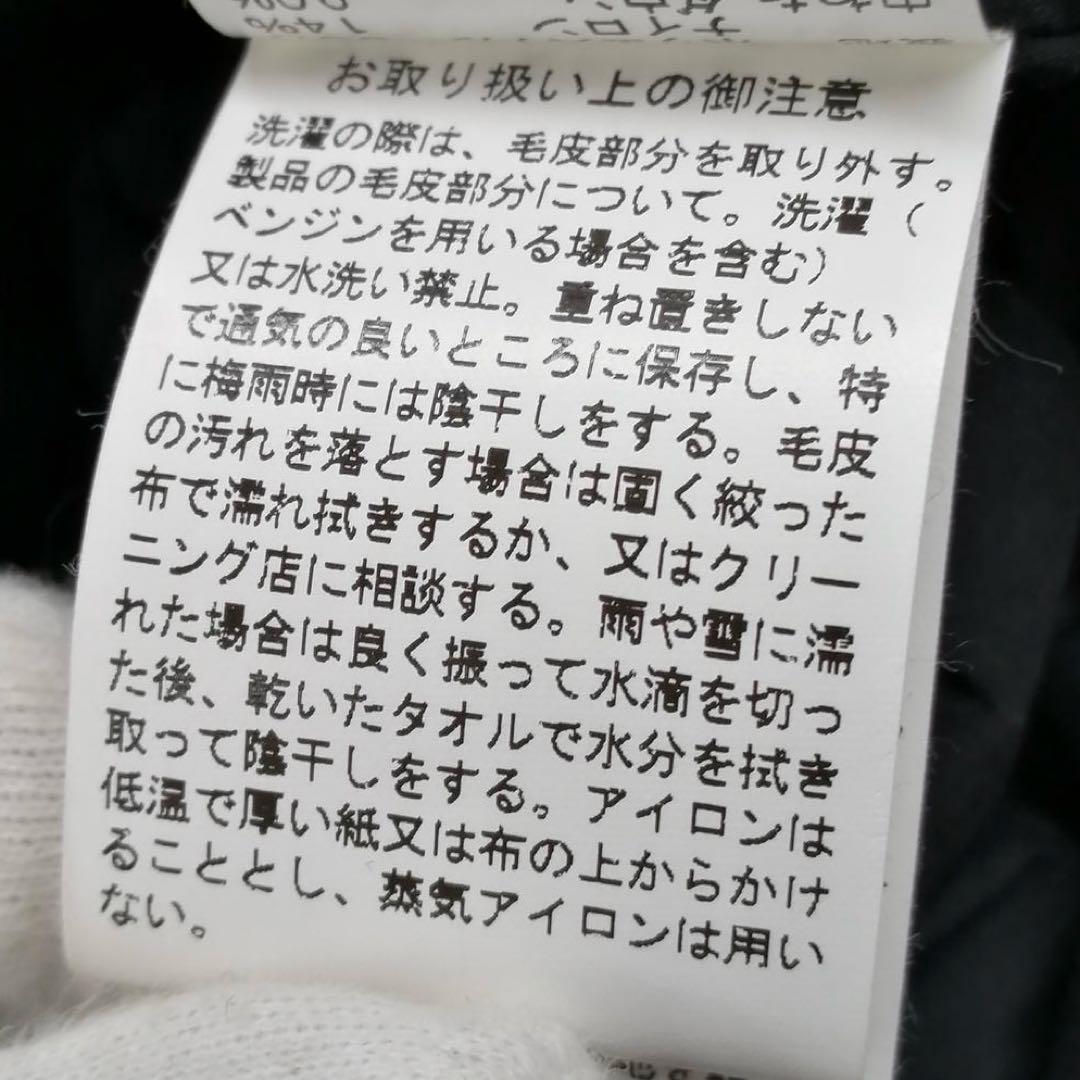 お取り扱い上の御注意
洗濯の際は、毛皮部分を取り外す。
製品の毛皮部分について。洗濯（
ベンジンを用いる場合を含む）
又は水洗い禁止。重ね置きしない
で通気の良いところに保存し、特
に梅雨時には陰干しをする。毛皮
の汚れを落とす場合は固く絞った
布で濡れ拭きするか、又はクリー
ニング店に相談する。雨や雪に濡
れた場合は良く振って水滴を切っ
た後、乾いたタオルで水分を拭き
取って陰干しをする。アイロンは
低温で厚い紙又は布の上からかけ
ることとし、蒸気アイロンは用い
ない。